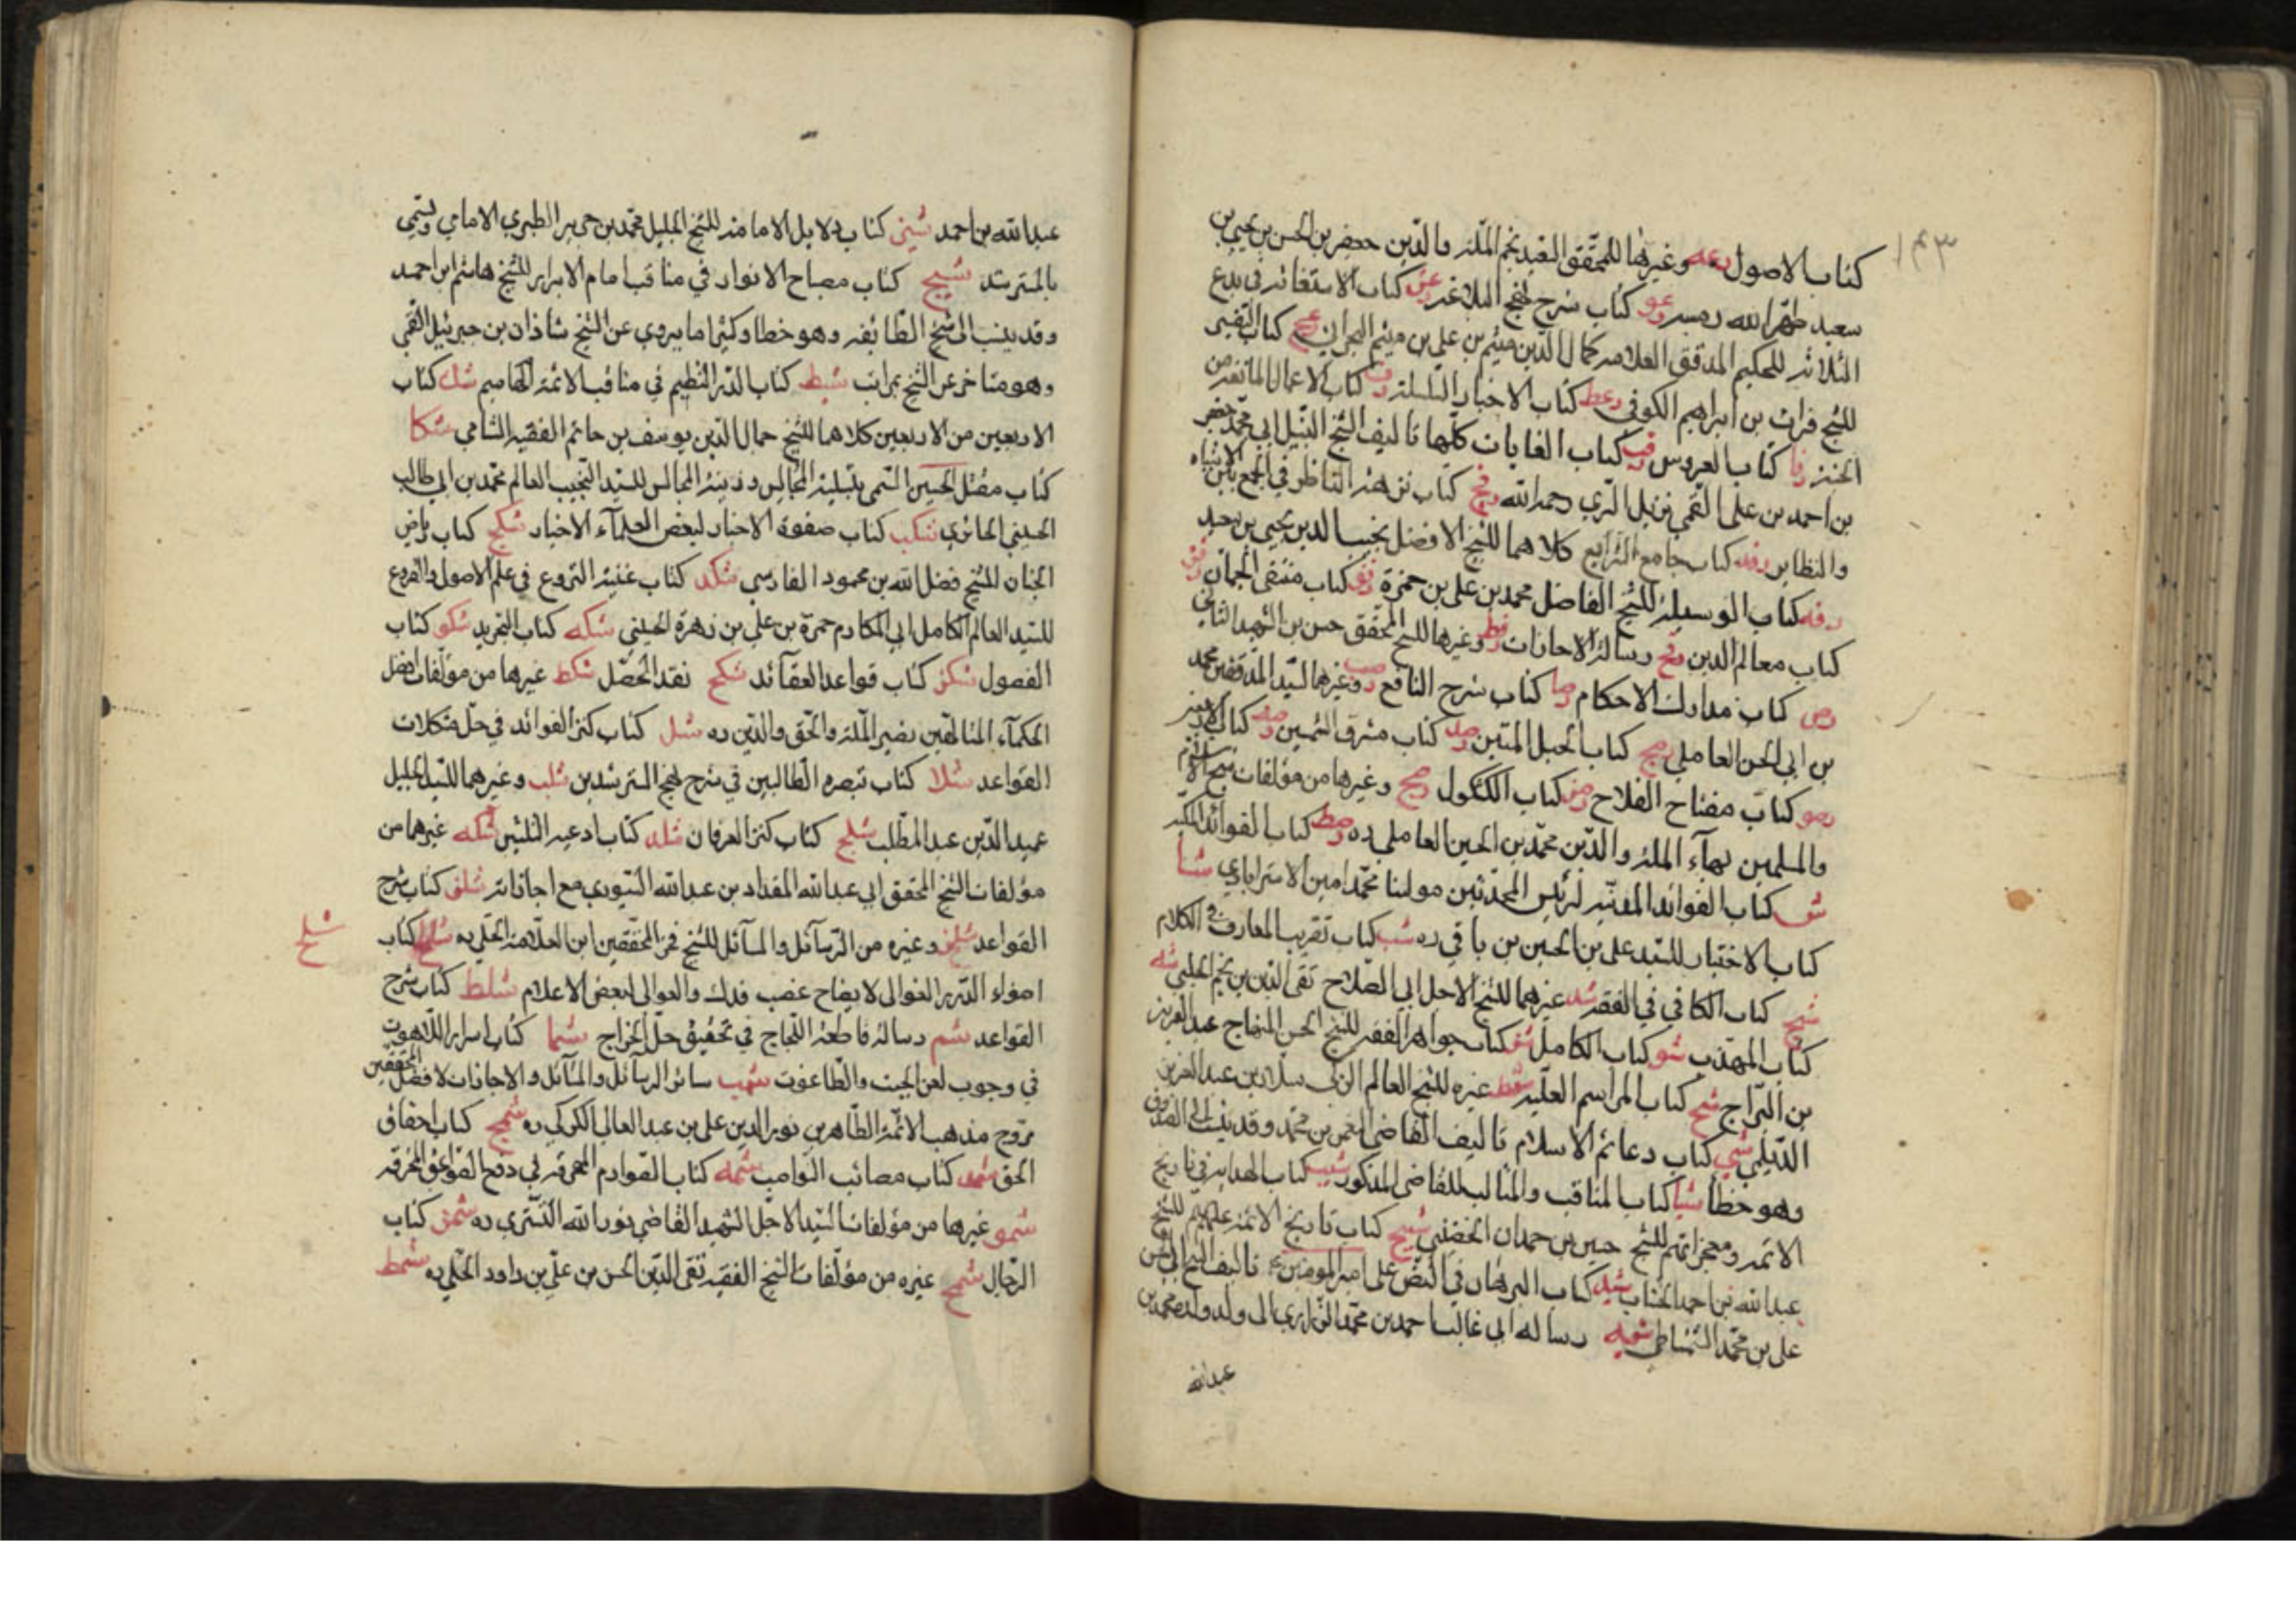 ١٣٣
كتاب الاصول رعه وغيرها للمحقق السعيد نجم الملة والدين جعفر بن الحسن بن يحيى بن
سعيد طهر الله رمسه رعو كتاب شرح نهج البلاغة رعز كتاب الاستغاثة في بدع
الثلاثة للحكيم المدقق العلامة كمال الدين ميثم بن علي بن ميثم البحراني رعح كتاب التفسير
للشيخ فرات بن ابراهيم الكوفي رعط كتاب الاخبار المسلسلة رف كتاب الاعمال المانعة من
الجنة رفا كتاب العروس رفب كتاب الغايات كلها تاليف الشيخ النبيل ابي محمد جعفر
بن احمد بن علي القمي نزيل الري رحمه الله رفج كتاب نزهة الناظر في الجمع بين الاشباه
والنظاير رفد كتاب جامع الشرايع كلاهما للشيخ الافضل نجيب الدين يحيى بن سعيد
رفه كتاب الوسيلة للشيخ الفاضل محمد بن علي بن حمزة رفو كتاب منتقى الجمان رفز
كتاب معالم الدين رفح رسالة الاجازات رفط وغيرها للشيخ المحقق حسن بن الشهيد الثاني
رص كتاب مدارك الاحكام رصا كتاب شرح النافع رصب وغيرها للسيد المدقق محمد
بن ابي الحسن العاملي رصج كتاب الحبل المتين رصد كتاب مشرق الشمسين رصه كتاب
رصو كتاب مفتاح الفلاح رصز كتاب الكشكول رصح وغيرها من مؤلفات شيخ الاسلام
والمسلمين بهآء الملة والدين محمد بن الحسين العاملي ره رصط كتاب الفوائد المكية
ش كتاب الفوائد المدنية لرئيس المحدثين مولينا محمد امين الاسترابادي شا
كتاب الاختيار للسيد علي بن الحسين بن باقي ره شب كتاب تقريب المعارف في الكلام
شج كتاب الكافي في الفقه شد غيرهما للشيخ الاجل ابي الصلاح تقي الدين بن نجم الحلبي شه
كتاب المهذب شو كتاب الكامل شز كتاب جواهر الفقه للشيخ الحسن المنهاج عبد العزيز
بن البراج شح كتاب المراسم العلية شط غيره للشيخ العالم الزكي سلار بن عبد العزيز
الديلمي شي كتاب دعائم الاسلام تاليف القاضي النعمن بن محمد وقد ينسب الى الصدوق
وهو خطأ شيا كتاب المناقب والمثالب للقاضي المذكور شيب كتاب الهداية في تاريخ
الائمة ومعجزاتهم للشيخ حسين بن حمدان الحضيني شيج كتاب تاريخ الائمة عليهم للشيخ
عبد الله بن احمد الخشاب شيد كتاب البرهان في النص على امير المومنين تاليف الشيخ ابي الحسن
علي بن محمد الشمشاطي شيه رساله ابي غالب احمد بن محمد الزراري الى ولد ولده محمد بن
عبدالله
عبدالله بن احمد شيز كتاب دلايل الامامة للشيخ الجليل محمد بن جرير الطبري الامامي ويسمى
بالمسترشد شيح كتاب مصباح الانوار في مناقب امام الابرار للشيخ هاشم ابن احمد
وقد ينسب الى شيخ الطائفة وهو خطا وكثيرا ما يروي عن الشيخ شاذان بن جبرئيل القمي
وهو متاخر عن الشيخ بمراتب شيط كتاب الدر النظيم في مناقب الائمة اللهاميم شك كتاب
الاربعين من الاربعين كلاهما للشيخ جمال الدين يوسف بن حاتم الفقيه الشامي شكا
كتاب مقتل الحسين المسمى بتسلية المجالس وزينة المجالس للسيد النجيب العالم محمد بن ابي طالب
الحسيني الحائري شكب كتاب صفوة الاخبار لبعض العلمآء الاخيار شكج كتاب رياض
الجنان للشيخ فضل الله بن محمود الفارسي شكد كتاب غنية النزوع في علم الاصول والفروع
للسيد العالم الكامل ابي المكارم حمزة بن علي بن زهرة الحسيني شكه كتاب التجريد شكو كتاب
الفصول شكز كتاب قواعد العقآئد شكح نقد المحصل شكط غيرها من مؤلفات افضل
الحكمآء المتالهين نصير الملة والحق والدين ره شل كتاب كنز الفوائد في حل مشكلات
القواعد شلا كتاب تبصره الطالبين في شرح نهج المسترشدين شلب وغيرهما للسيد الجليل
عميد الدين عبد المطلب شلج كتاب كنز العرفان شلد كتاب ادعية الثلثين شله غيرها من
مؤلفات الشيخ المحقق ابي عبدالله المقداد بن عبدالله السيوري مع اجازاته شلو كتاب شرح
القواعد شلز وغيره من الرسآئل والمسآئل للشيخ فخر المحققين ابن العلامة الحلي ره كتاب
شلح
اضواء الدرر الغوالي لايضاح غصب فدك والعوالي لبعض الاعلام شلط كتاب شرح
القواعد شم رسالة قاطعة اللجاج في تحقيق حل الخراج شما كتاب اسرار اللاهوت
في وجوب لعن الجبت والطاغوت شمب سائر الرسآئل والمسآئل والاجازات لافضل المحققين
مروج مذهب الائمة الطاهرين نور الدين علي بن عبد العالي الكركي ره شمج كتاب احقاق
الحق شمد كتاب مصائب النواصب شمه كتاب الصوارم المهرقة في دفع الصواعق المحرقة
شمو غيرها من مؤلفات السيد الاجل الشهيد القاضي نور الله التستري ره شمز كتاب
الرجال شمح غيره من مؤلفات الشيخ الفقيه تقي الدين الحسن بن علي بن داود الحلي ره شمط